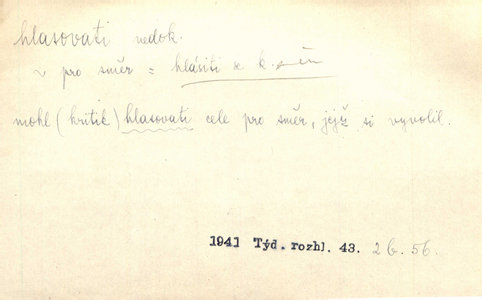 hlasovati nedok.
~ pro směr = hlásiti se k
mohl (kritik) hlasovati cele pro směr, jejž si vyvolil.
1941 Týd. rozhl. 43. 26. 56.